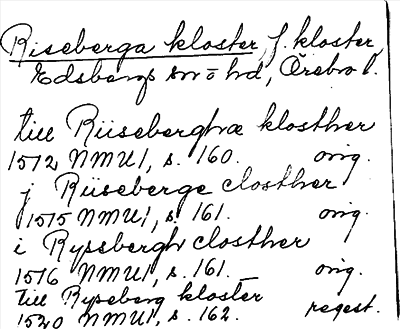 Riseberga kloster, f. kloster,
Edsbergs sn o hd, Örebro l.
till Riiseberghæ klosther
1512 NMU1, s. 160. orig.
j Riiseberge closther
1515 NMU1, s. 161. orig.
i Rysebergh closther
1516 NMU1, s. 161. orig.
till Ryseberg kloster
1520 NMU1, s. 162. regest.